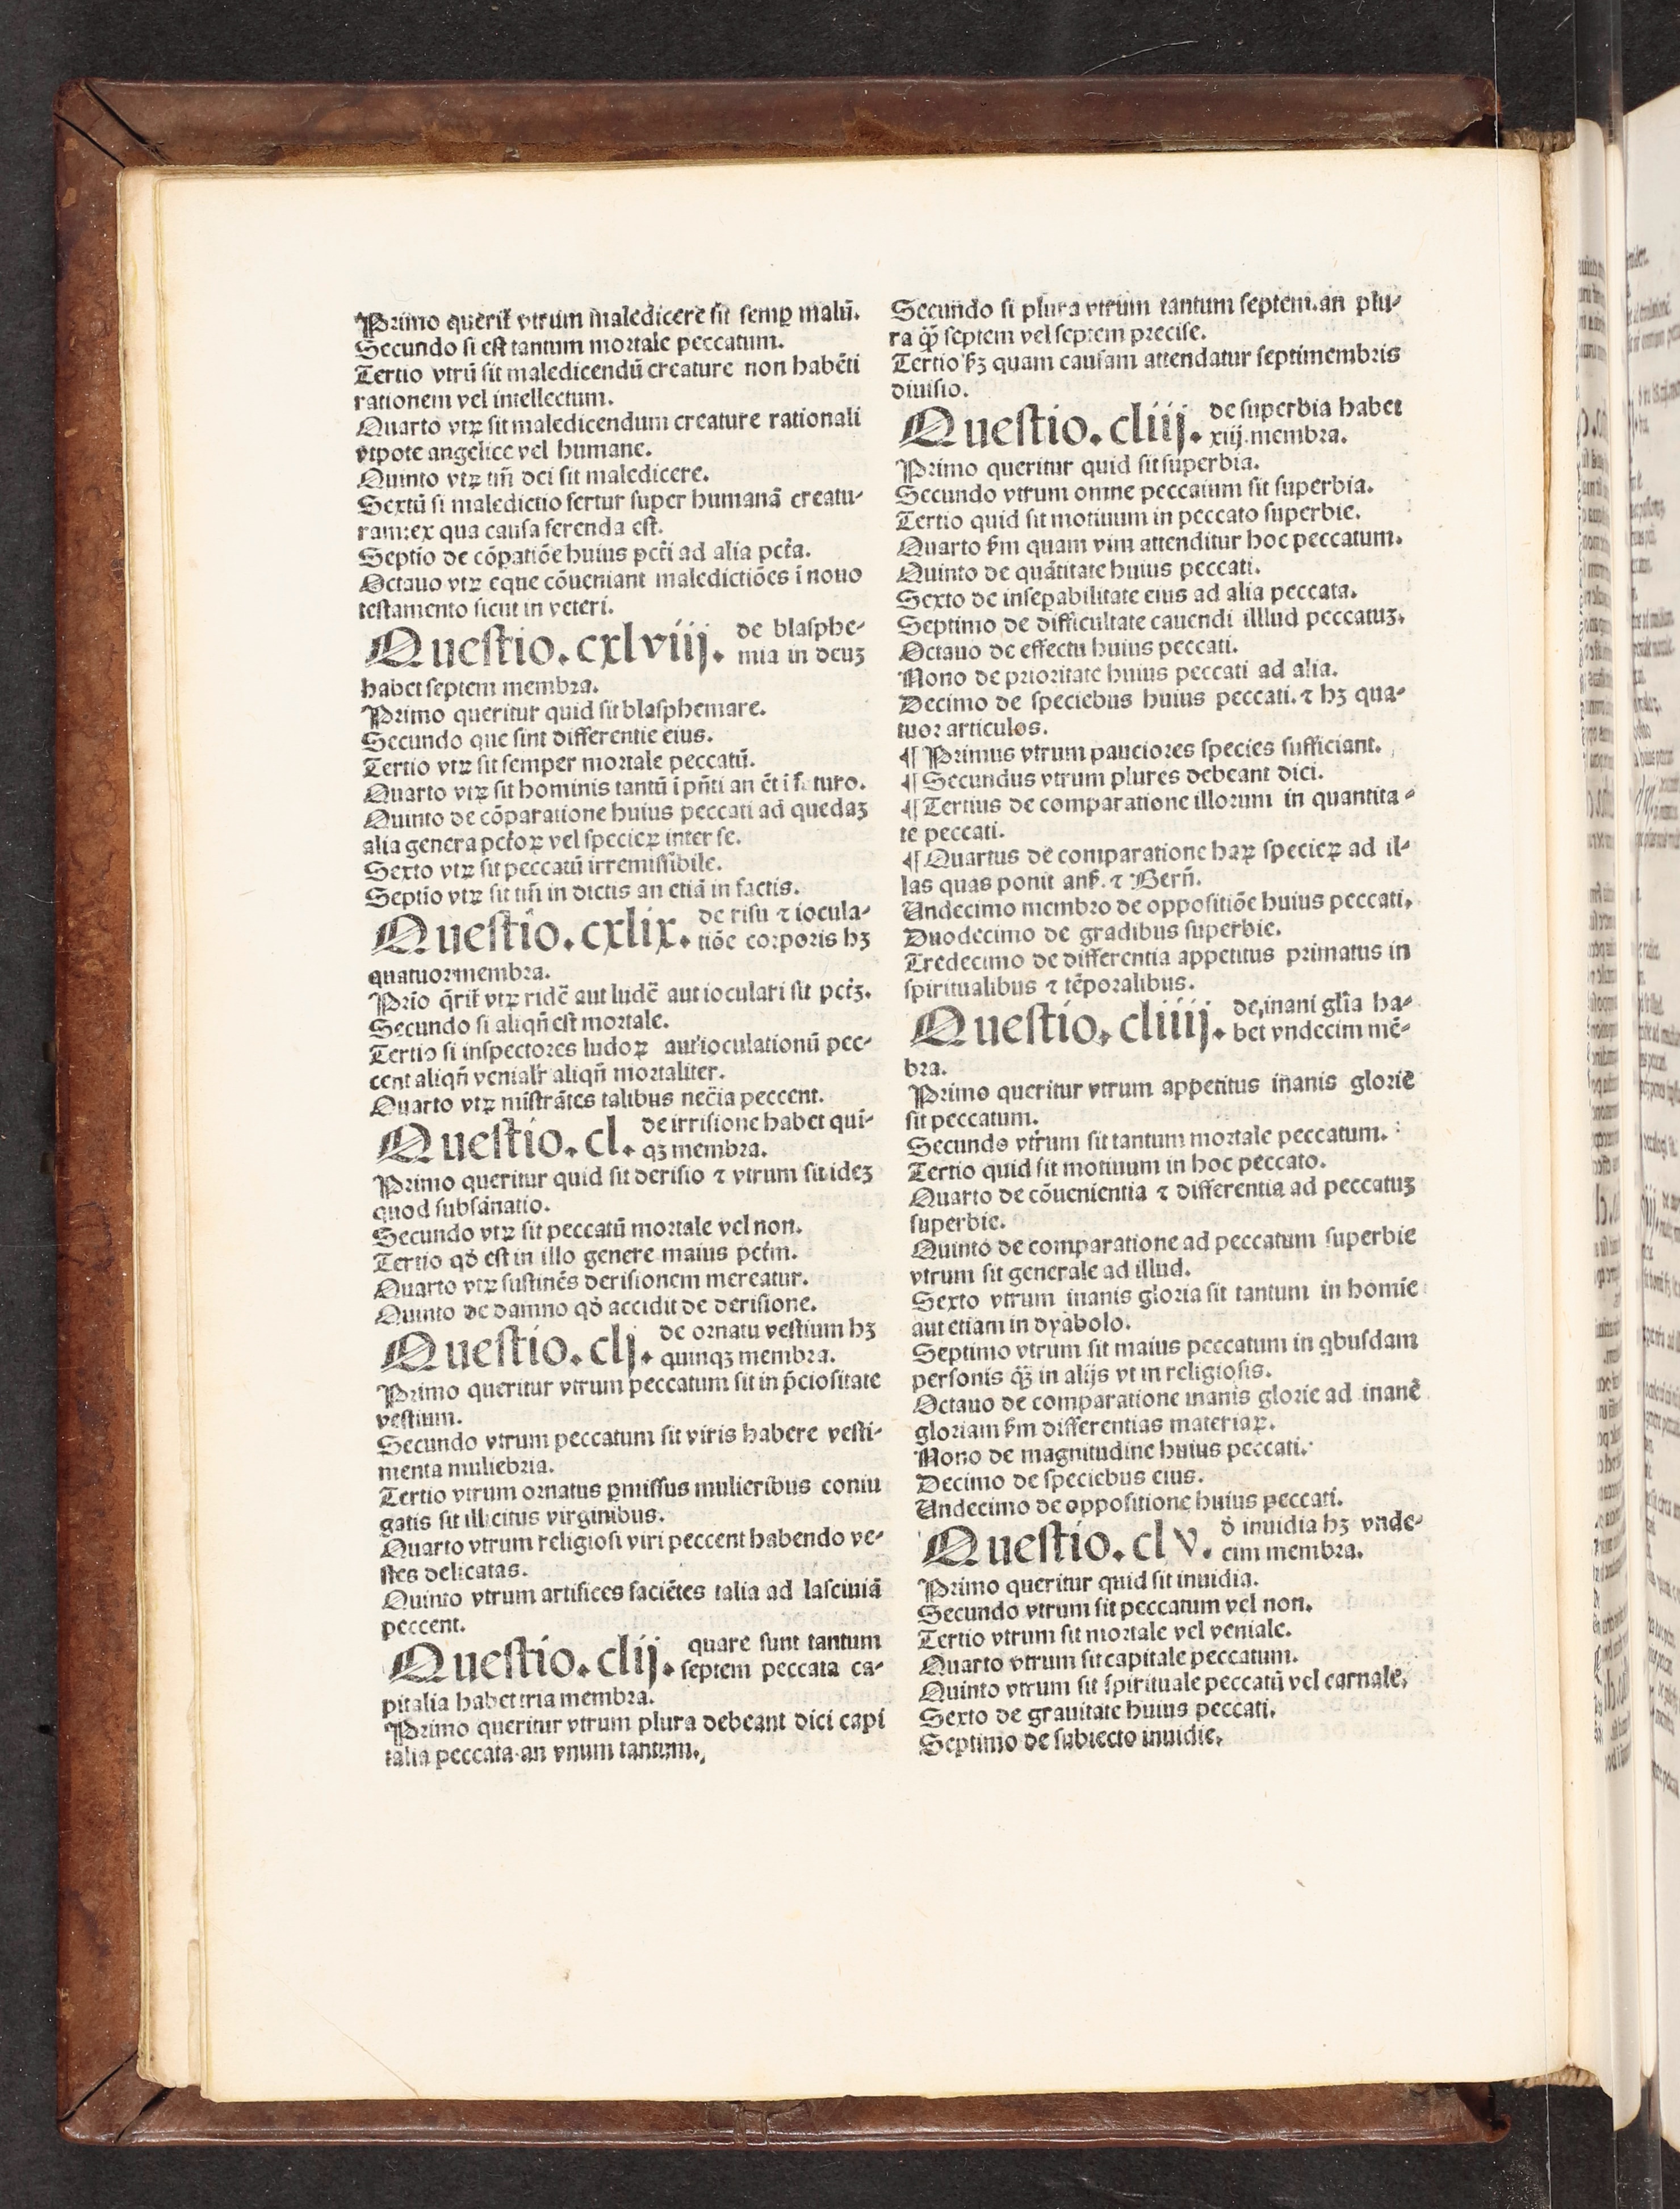 Primo querit᷑ vtrum maledicere sit semꝑ malū.
Secundo si est tantum mortale peccatum.
Tertio vtrū sit maledicendū creature non habēti
rationem vel intellectum.
Quarto vtꝝ sit maledicendum creature rationali
vtpote angelice vel humane.
Quinto vtꝝ tm̄ dei sit maledicere.
Sextū si maledictio fertur super humanā creatu-
ram:ex qua causa ferenda est.
Septīo de cōpatiōe huius pctī ad alia pctā.
Octauo vtꝝ eque cōueniant maledictiōes ī nouo
testamento sicut in veteri.
Questio.cxlviij. de blasphe-
mia in deuꝫ
habet septem membra.
Primo queritur quid sit blasphemare.
Secundo que sint differentie eius.
Tertio vtꝝ sit semper mortale peccatū.
Quarto vtꝝ sit hominis tantū ī pn̄ti an ēt ī futuro.
Quinto de cōparatione huius peccati ad quedaꝫ
alia genera pctōꝝ vel specieꝝ inter se.
Sexto vtꝝ sit peccatū irremissibile.
Septīo vtꝝ sit tm̄ in dictis an etiā in factis.
Questio.cxlix. de risu ⁊ iocula-
tiōe corporis hꝫ
quatuor membra.
Prīo q̄rit᷑ vtꝝ ridē aut ludē aut ioculari sit pctꝫ.
Secundo si aliqn̄ est mortale.
Tertio si inspectores ludoꝝ aut ioculationū pec-
cent aliqn̄ venialr̄ aliqn̄ mortaliter.
Quarto vtꝝ mīstrātes talibus neccīa peccent.
Questio.cl. de irrisione habet quī-
qꝫ membra.
Primo queritur quid sit derisio ⁊ vtrum sit ideꝫ
quod subsānatio.
Secundo vtꝝ sit peccatū mortale vel non.
Tertio qđ est in illo genere maius pctm̄.
Quarto vtꝝ sustinēs derisionem mereatur.
Quinto de damno qđ accidit de derisione.
Questio.clj. de ornatu vestium hꝫ
quinqꝫ membra.
Primo queritur vtrum peccatum sit in p̄ciositate
vestium.
Secundo vtrum peccatum sit viris habere vesti-
menta muliebria.
Tertio vtrum ornatus ꝑmissus mulieribus coniu
gatis sit illicitus virginibus.
Quarto vtrum religiosi viri peccent habendo ve-
stes delicatas.
Quinto vtrum artifices faciētes talia ad lasciuiā
peccent.
Questio.clij. quare sunt tantum
septem peccata ca-
pitalia habet tria membra.
Primo queritur vtrum plura debeant dici capi
talia peccata.an vnum tantum.
Secundo si plura vtrum tantum septem.an plu-
ra ꝙ̄ septem vel septem precise.
Tertio ẜꝫ quam causam attendatur septimembris
diuisio.
Questio.cliij. de superbia habet
xiij.membra.
Primo queritur quid sit superbia.
Secundo vtrum omne peccatum sit superbia.
Tertio quid sit motiuum in peccato superbie.
Quarto ẜm quam vim attenditur hoc peccatum.
Quinto de quātitate huius peccati.
Sexto de insepabilitate eius ad alia peccata.
Septimo de difficultate cauendi illlud peccatuꝫ.
Octauo de effectu huius peccati.
Nono de prioritate huius peccati ad alia.
Decimo de speciebus huius peccati.⁊ hꝫ qua-
tuor articulos.
¶ Primus vtrum pauciores species sufficiant.
¶ Secundus vtrum plures debeant dici.
¶ Tertius de comparatione illorum in quantita-
te peccati.
¶ Quartus de comparatione haꝝ specieꝝ ad il-
las quas ponit anẜ. ⁊ Berñ.
Undecimo membro de oppositiōe huius peccati.
Duodecimo de gradibus superbie.
Tredecimo de differentia appetitus primatus in
spiritualibus ⁊ tēporalibus.
Questio.cliiij. de inani glīa ha-
bet vndecim mē-
bra.
Primo queritur vtrum appetitus inanis glorie
sit peccatum.
Secundo vtrum sit tantum mortale peccatum.
Tertio quid sit motiuum in hoc peccato.
Quarto de cōuenientia ⁊ differentia ad peccatuꝫ
superbie.
Quinto de comparatione ad peccatum superbie
vtrum sit generale ad illud.
Sexto vtrum inanis gloria sit tantum in homīe
aut etiam in dyabolo.
Septimo vtrum sit maius peccatum in qbusdam
personis qꝫ̄ in alijs vt in religiosis.
Octauo de comparatione inanis glorie ad inanē
gloriam ẜm differentias materiaꝝ.
Nono de magnitudine huius peccati.
Decimo de speciebus eius.
Undecimo de oppositione huius peccati.
Questio.clv. đ inuidia hꝫ vnde-
cim membra.
Primo queritur quid sit inuidia.
Secundo vtrum sit peccatum vel non.
Tertio vtrum sit mortale vel veniale.
Quarto vtrum sit capitale peccatum.
Quinto vtrum sit spirituale peccatū vel carnale.
Sexto de grauitate huius peccati.
Septimo de subiecto inuidie.